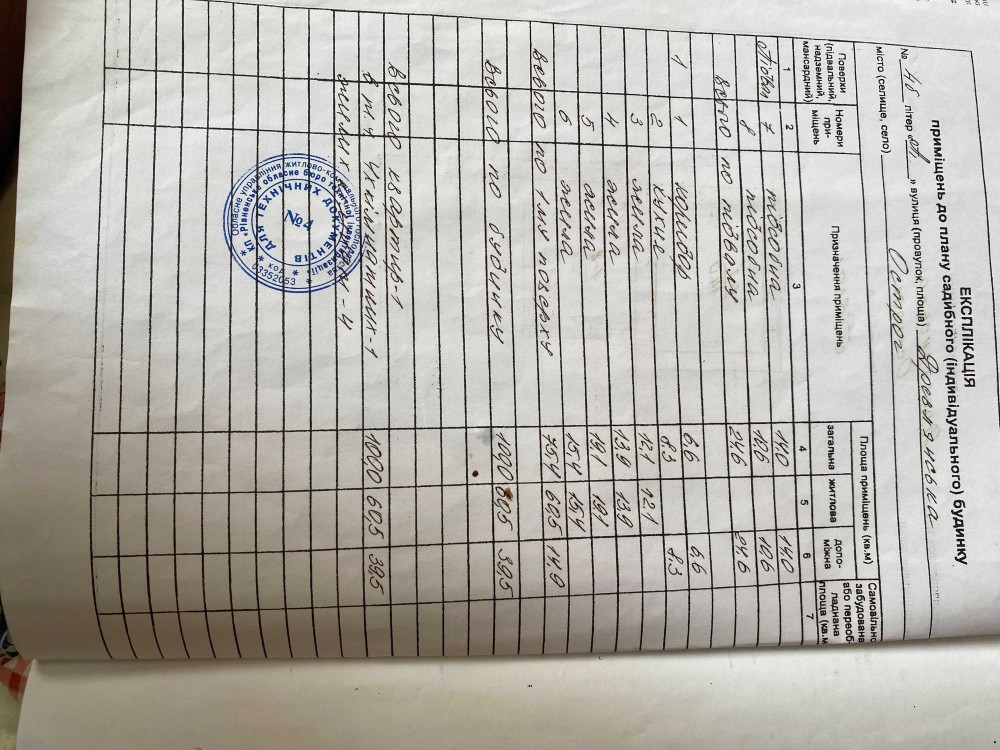 ЕКСПЛІКАЦІЯ
приміщень до плану садибного (індивідуального) будинку
№ 48 літер „А" вулиця (провулок, площа) Древлянська
місто (селище, село) Острог
Поверхи (підвальний, надземний, мансардний) Номери приміщень Призначення приміщень Площа приміщень (кв.м) загальна житлова допоміжна Самовільно забудована або переобладнана площа (кв.м
1 2 3 4 5 6 7
Підвал 7 підсобна 14,0 14,0
8 підсобна 10,6 10,6
всього по підвалу 24,6 24,6
1 1 коридор 6,6 6,6
2 кухня 8,3 8,3
3 житла 12,1 12,1
4 житла 13,9 13,9
5 житла 19,1 19,1
6 житла 15,4 15,4
всього по 1му поверху 75,4 60,5 14,9
всього по будинку 100,0 60,5 39,5
всього квартир-1
в т.ч. 4 кімнатних-1 100,0 60,5 39,5
житлових - 4
Обласне управління житлово-комунального господарства
КП «Рівненське обласне бюро технічної інвентаризації»
ДЛЯ ТЕХНІЧНИХ ДОКУМЕНТІВ
№4
код
03352053